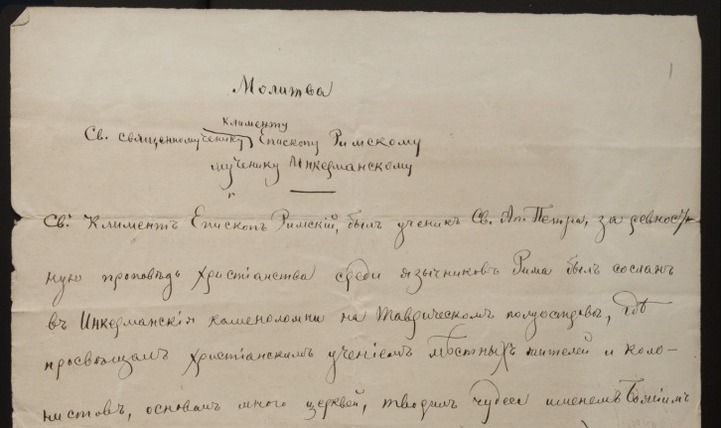 1
Молитва
Клименту
Св. священномученику Епископу Римскому
мученику Инкерманскому
Св. Климентъ Епископъ Римскій, былъ ученик Св. Ап. Петра, за ревност-
ную проповѣдь христіанства среди язычниковъ Рима былъ сосланъ
въ Инкерманскія каменоломни на Таврическомъ полуостровѣ, гдѣ
просвѣщалъ христіанскимъ ученіемъ мѣстныхъ жителей и коло-
нистовъ, основалъ много церквей, творилъ чудеса именемъ Божіимъ